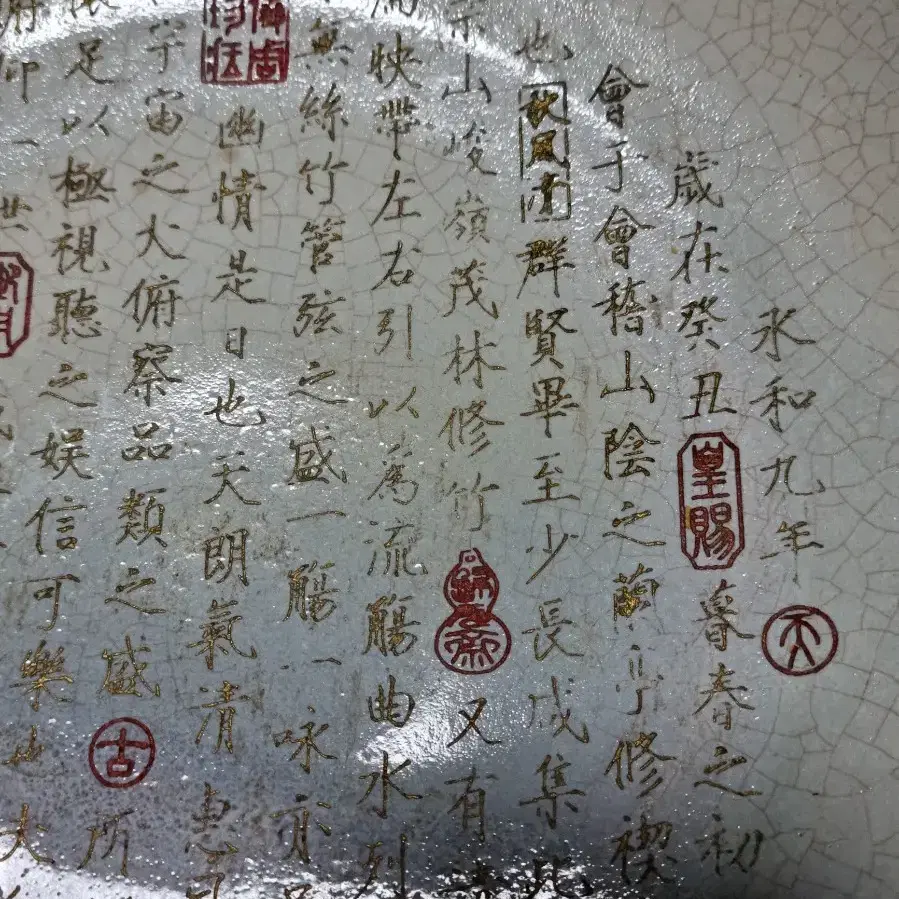 永和九年
歲在癸丑 皇賜 暮春之初
會于會稽山陰之蘭亭修禊
也 群賢畢至少長咸集此
崇山峻嶺茂林修竹 又有清
映帶左右引以為流觴曲水列
無絲竹管弦之盛一觴一咏亦足
幽情是日也天朗氣清惠風
宇宙之大俯察品類之盛 古 所
足以極視聽之娱信可樂也夫
仰一世